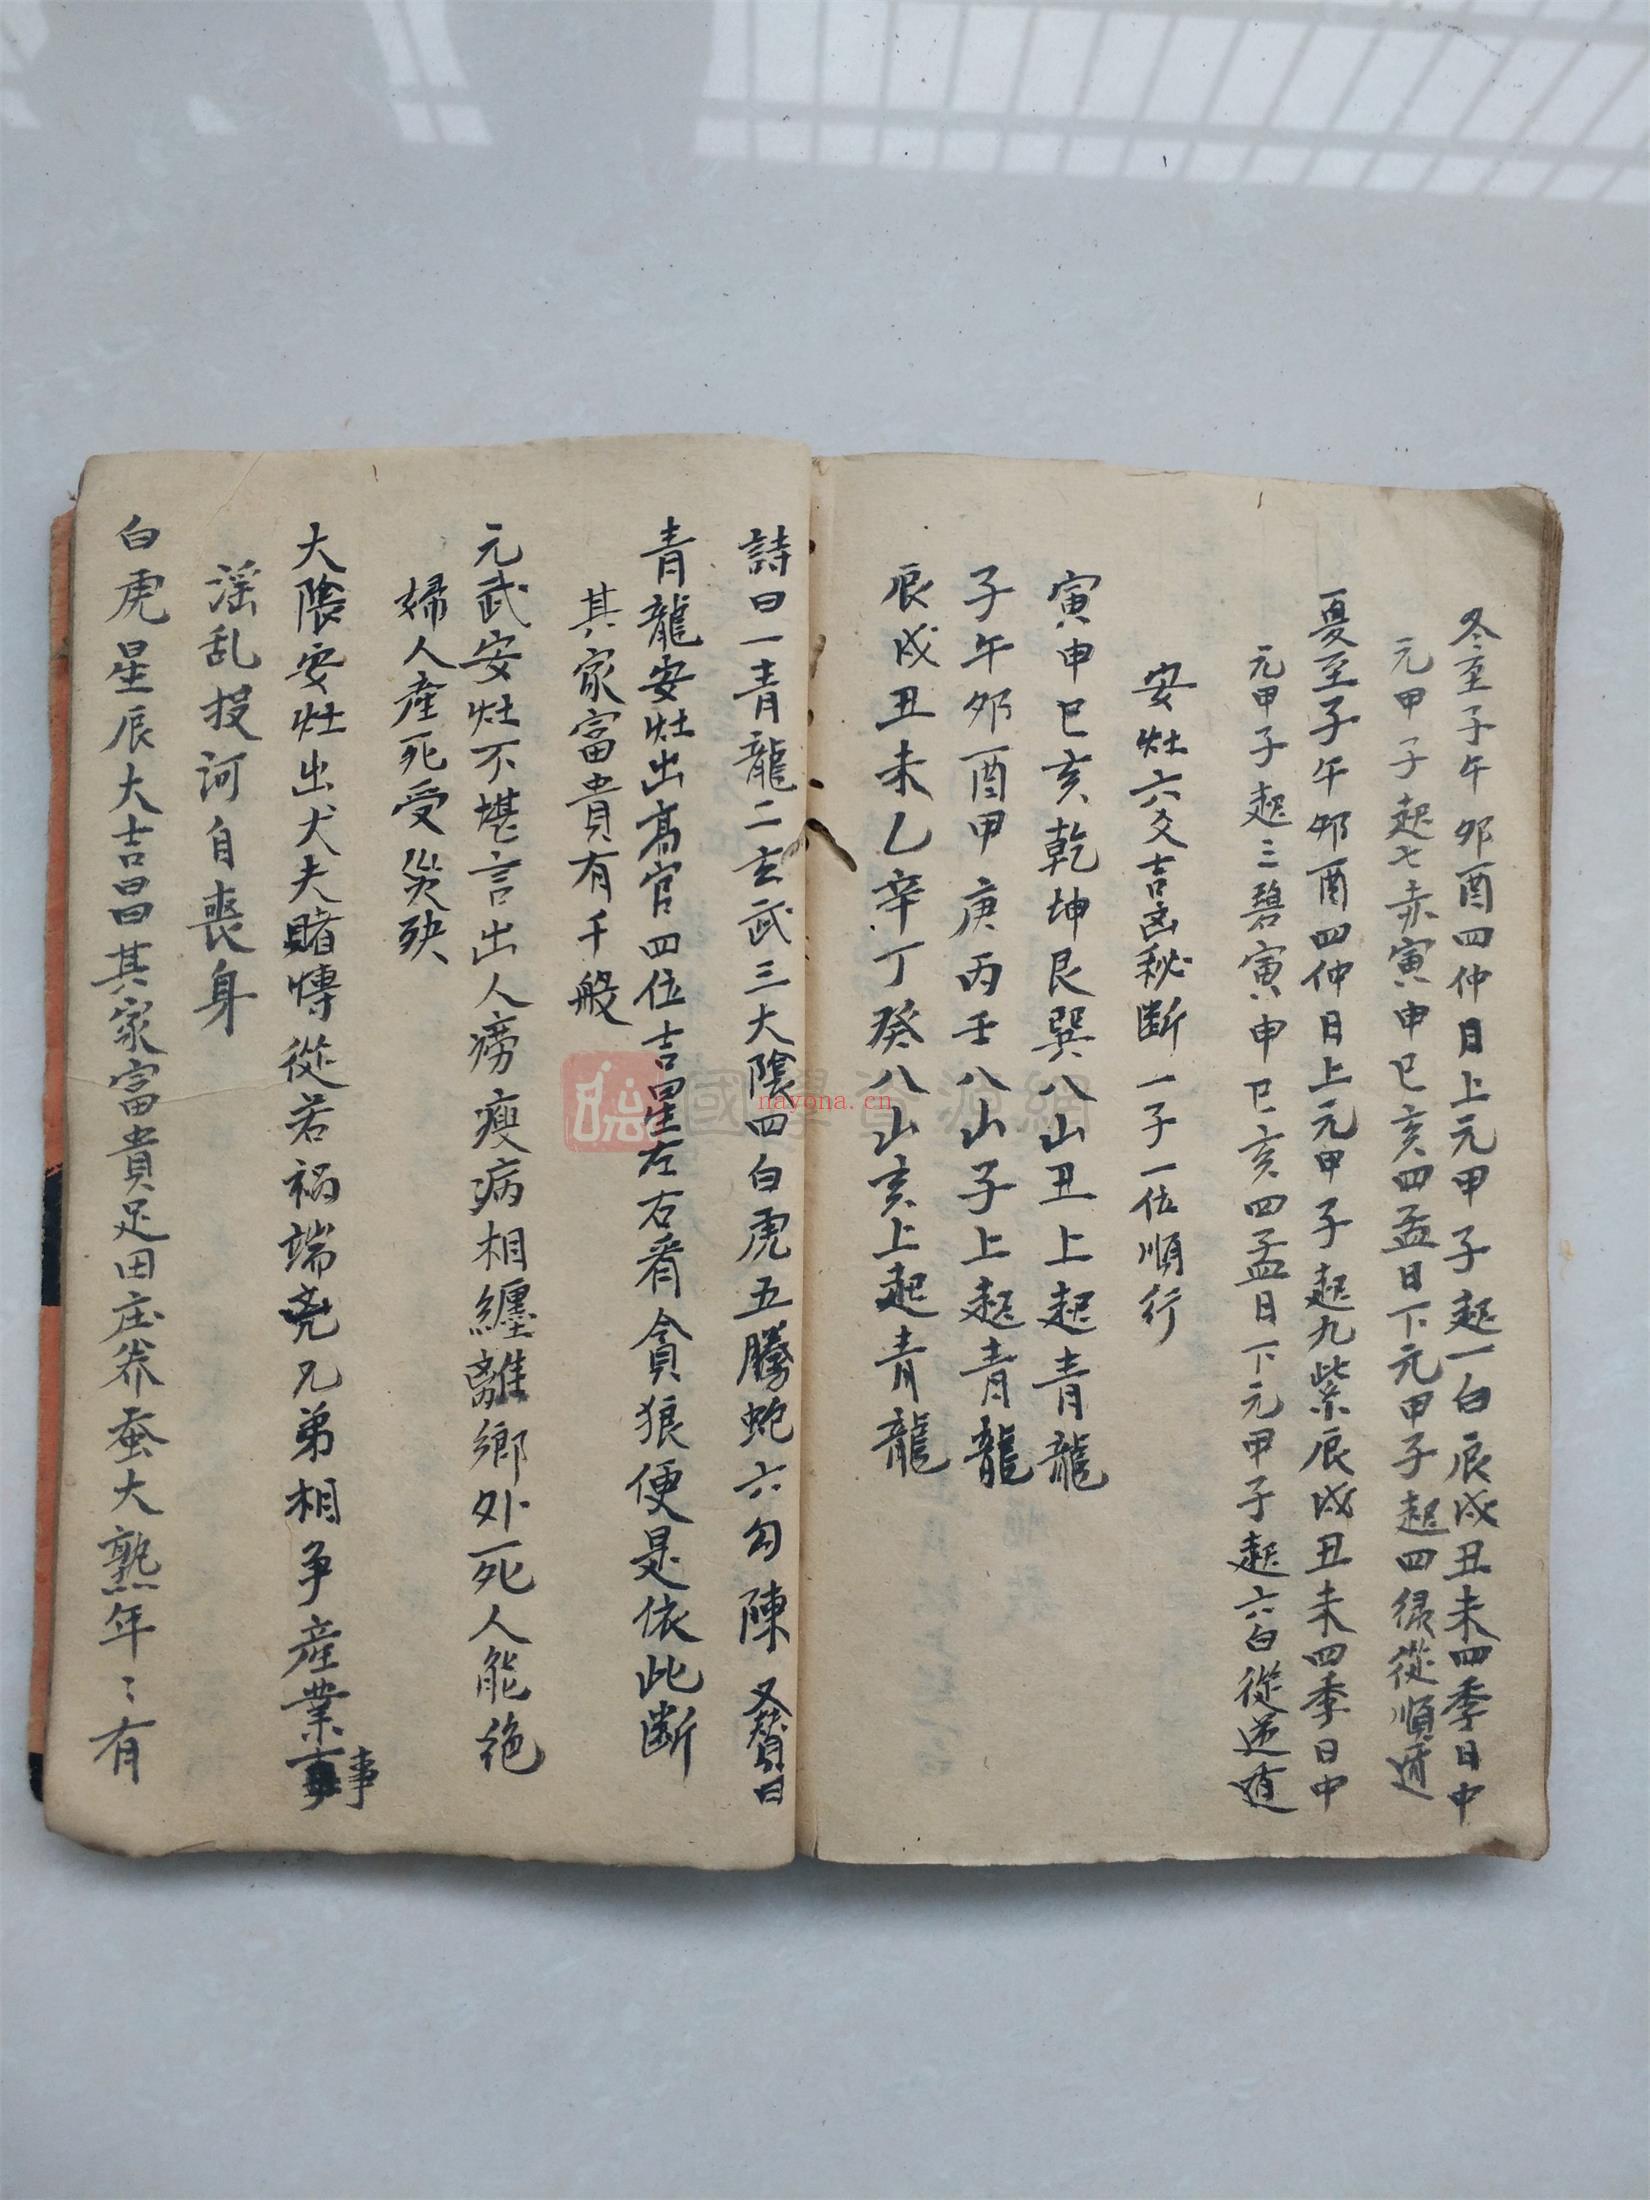 冬至子午夘酉四仲日上元甲子起一白辰戌丑未四季日中
元甲子起七赤寅申巳亥四孟日下元甲子起四绿從順遁
夏至子午夘酉四仲日上元甲子起九紫辰戌丑未四季日中
元甲子起三碧寅申巳亥四孟日下元甲子起六白從逆遁
安灶六爻吉凶秘断一子一位順行
寅申巳亥乾坤艮巽八山丑上起青龍
子午夘酉甲庚丙壬八山子上起青龍
辰戌丑未乙辛丁癸八山亥上起青龍
詩曰一青龍二玄武三大陰四白虎五騰蛇六勾陳又贊曰
青龍安灶出高官四位吉星左右看貪狼便是依此断
其家富貴有千般
元武安灶不堪言出人痨瘦病相纏離鄉外死人能绝
婦人産死受災殃
大陰安灶出犬夫賭慱從若祸端尭兄弟相争産業事
淫乱投河自喪身
白虎星辰大吉昌其家富貴足田庄养蚕大熟年〻有
國學資源網
nayona.cn